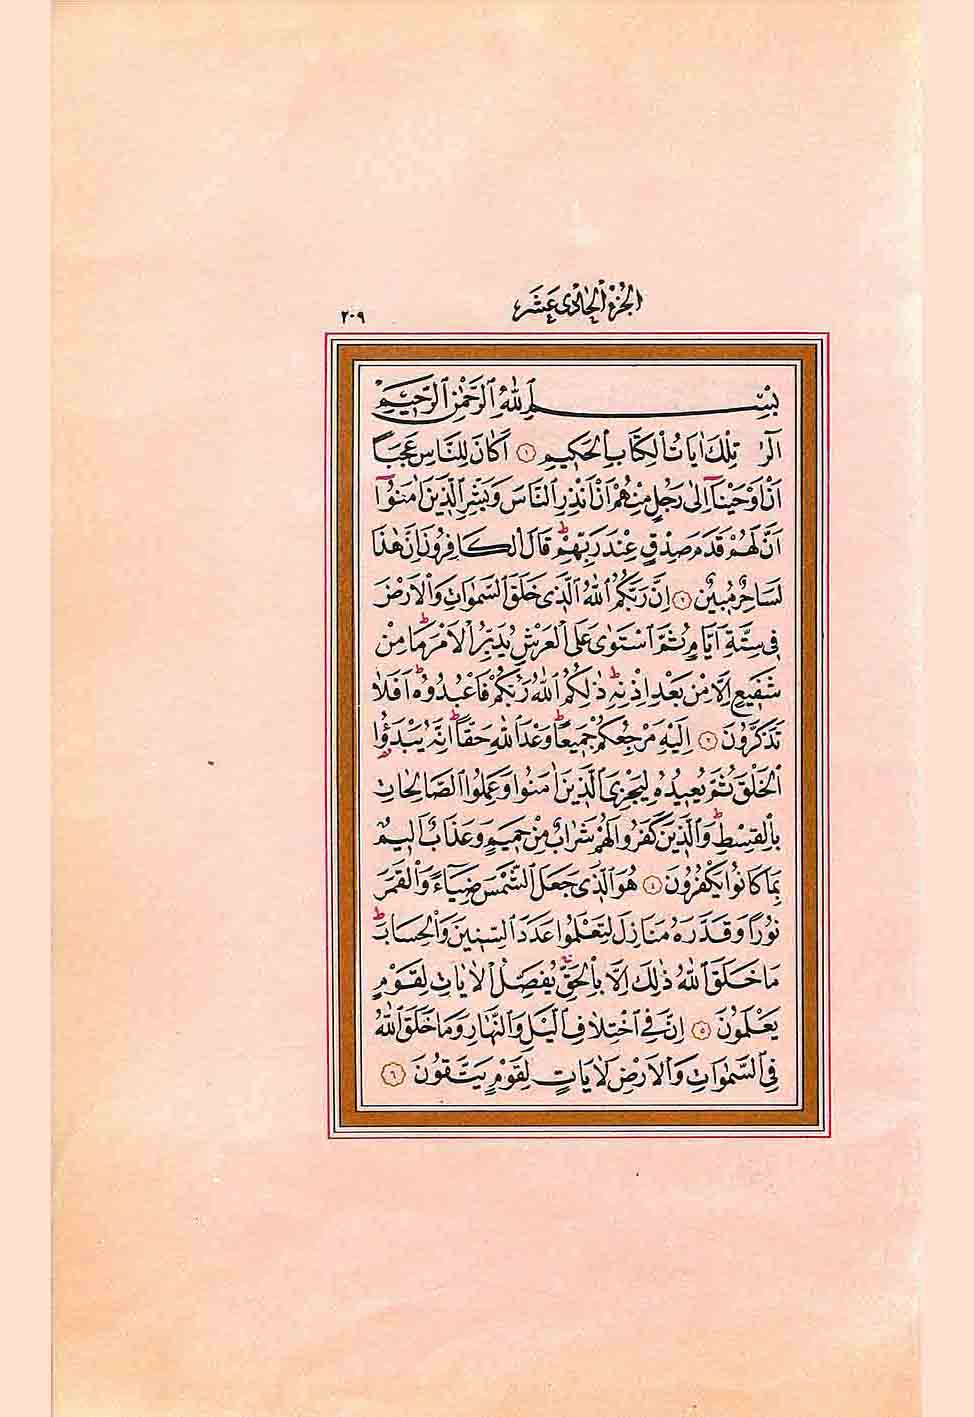 الجزء الحادي عشر
٢٠٩
بِسْمِ اللّٰهِ الرَّحْمٰنِ الرَّحٖيمِ
الٓرٰ تِلْكَ اٰيَاتُ الْكِتَابِ الْحَكٖيمِ ١ اَكَانَ لِلنَّاسِ عَجَبًا
اَنْ اَوْحَيْنَٓا اِلٰى رَجُلٍ مِنْهُمْ اَنْ اَنْذِرِ النَّاسَ وَبَشِّرِ الَّذٖينَ اٰمَنُٓوا
اَنَّ لَهُمْ قَدَمَ صِدْقٍ عِنْدَ رَبِّهِمْؕ قَالَ الْكَافِرُونَ اِنَّ هٰذَا
لَسَاحِرٌ مُبٖينٌ ٢ اِنَّ رَبَّكُمُ اللّٰهُ الَّذٖى خَلَقَ السَّمٰوَاتِ وَالْاَرْضَ
فٖى سِتَّةِ اَيَّامٍ ثُمَّ اسْتَوٰى عَلَى الْعَرْشِ يُدَبِّرُ الْاَمْرَؕ مَا مِنْ
شَفٖيعٍ اِلَّا مِنْ بَعْدِ اِذْنِهٖؕ ذٰلِكُمُ اللّٰهُ رَبُّكُمْ فَاعْبُدُوهُؕ اَفَلَا
تَذَكَّرُونَ ٣ اِلَيْهِ مَرْجِعُكُمْ جَمٖيعًاؕ وَعْدَ اللّٰهِ حَقًّاؕ اِنَّهُ يَبْدَؤُا
الْخَلْقَ ثُمَّ يُعٖيدُهُ لِيَجْزِىَ الَّذٖينَ اٰمَنُوا وَعَمِلُوا الصَّالِحَاتِ
بِالْقِسْطِؕ وَالَّذٖينَ كَفَرُوا لَهُمْ شَرَابٌ مِنْ حَمٖيمٍ وَعَذَابٌ اَلٖيمٌ
بِمَا كَانُوا يَكْفُرُونَ ٤ هُوَ الَّذٖى جَعَلَ الشَّمْسَ ضِيَٓاءً وَالْقَمَرَ
نُورًا وَقَدَّرَهُ مَنَازِلَ لِتَعْلَمُوا عَدَدَ السِّنٖينَ وَالْحِسَابَؕ
مَا خَلَقَ اللّٰهُ ذٰلِكَ اِلَّا بِالْحَقِّۚ يُفَصِّلُ الْاٰيَاتِ لِقَوْمٍ
يَعْلَمُونَ ٥ اِنَّ فِى اخْتِلَافِ الَّيْلِ وَالنَّهَارِ وَمَا خَلَقَ اللّٰهُ
فِى السَّمٰوَاتِ وَالْاَرْضِ لَاٰيَاتٍ لِقَوْمٍ يَتَّقُونَ ٦